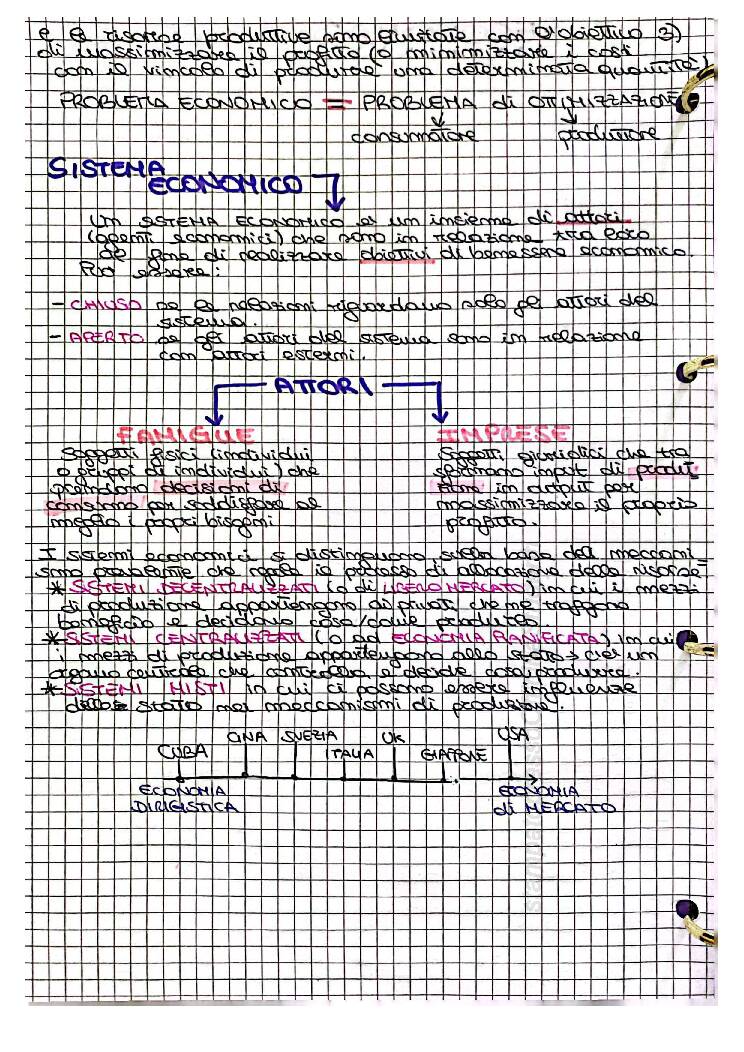 e le risorse produttive sono sfruttate con l'obiettivo 3)
di massimizzare il profitto (o minimizzare i costi
con il vincolo di produrre una determinata quantità)
PROBLEMA ECONOMICO = PROBLEMA di OTTIMIZZAZIONE
consumatore produttore
SISTEMA
ECONOMICO
Un SISTEMA ECONOMICO è un insieme di attori
(agenti economici) che sono in relazione tra loro
al fine di realizzare obiettivi di benessere economico.
Può essere:
- CHIUSO se le relazioni riguardano solo gli attori del
sistema.
- APERTO se gli attori del sistema sono in relazione
con attori esterni.
ATTORI
FAMIGLIE IMPRESE
Soggetti fisici (individui Soggetti giuridici che tra
o gruppi di individui) che sformano input di produ
prendono decisioni di zione in output per
consumo per soddisfare al massimizzare il proprio
meglio i propri bisogni profitto.
I sistemi economici si distinguono sulla base del meccani
smo prevalente che regola il processo di allocazione delle risorse
* SISTEMI DECENTRALIZZATI (o di LIBERO MERCATO) in cui i mezzi
di produzione appartengono ai privati che ne traggono
beneficio e decidono cosa/come produrre.
* SISTEMI CENTRALIZZATI (o ad ECONOMIA PIANIFICATA) in cui
i mezzi di produzione appartengono allo stato → c'è un
organo centrale che controlla e decide cosa produrre.
* SISTEMI MISTI in cui ci possono essere influenze
dello stato nei meccanismi di produzione.
CINA SVEZIA UK USA
CUBA ITALIA GIAPPONE
ECONOMIA ECONOMIA
DIRIGISTICA di MERCATO